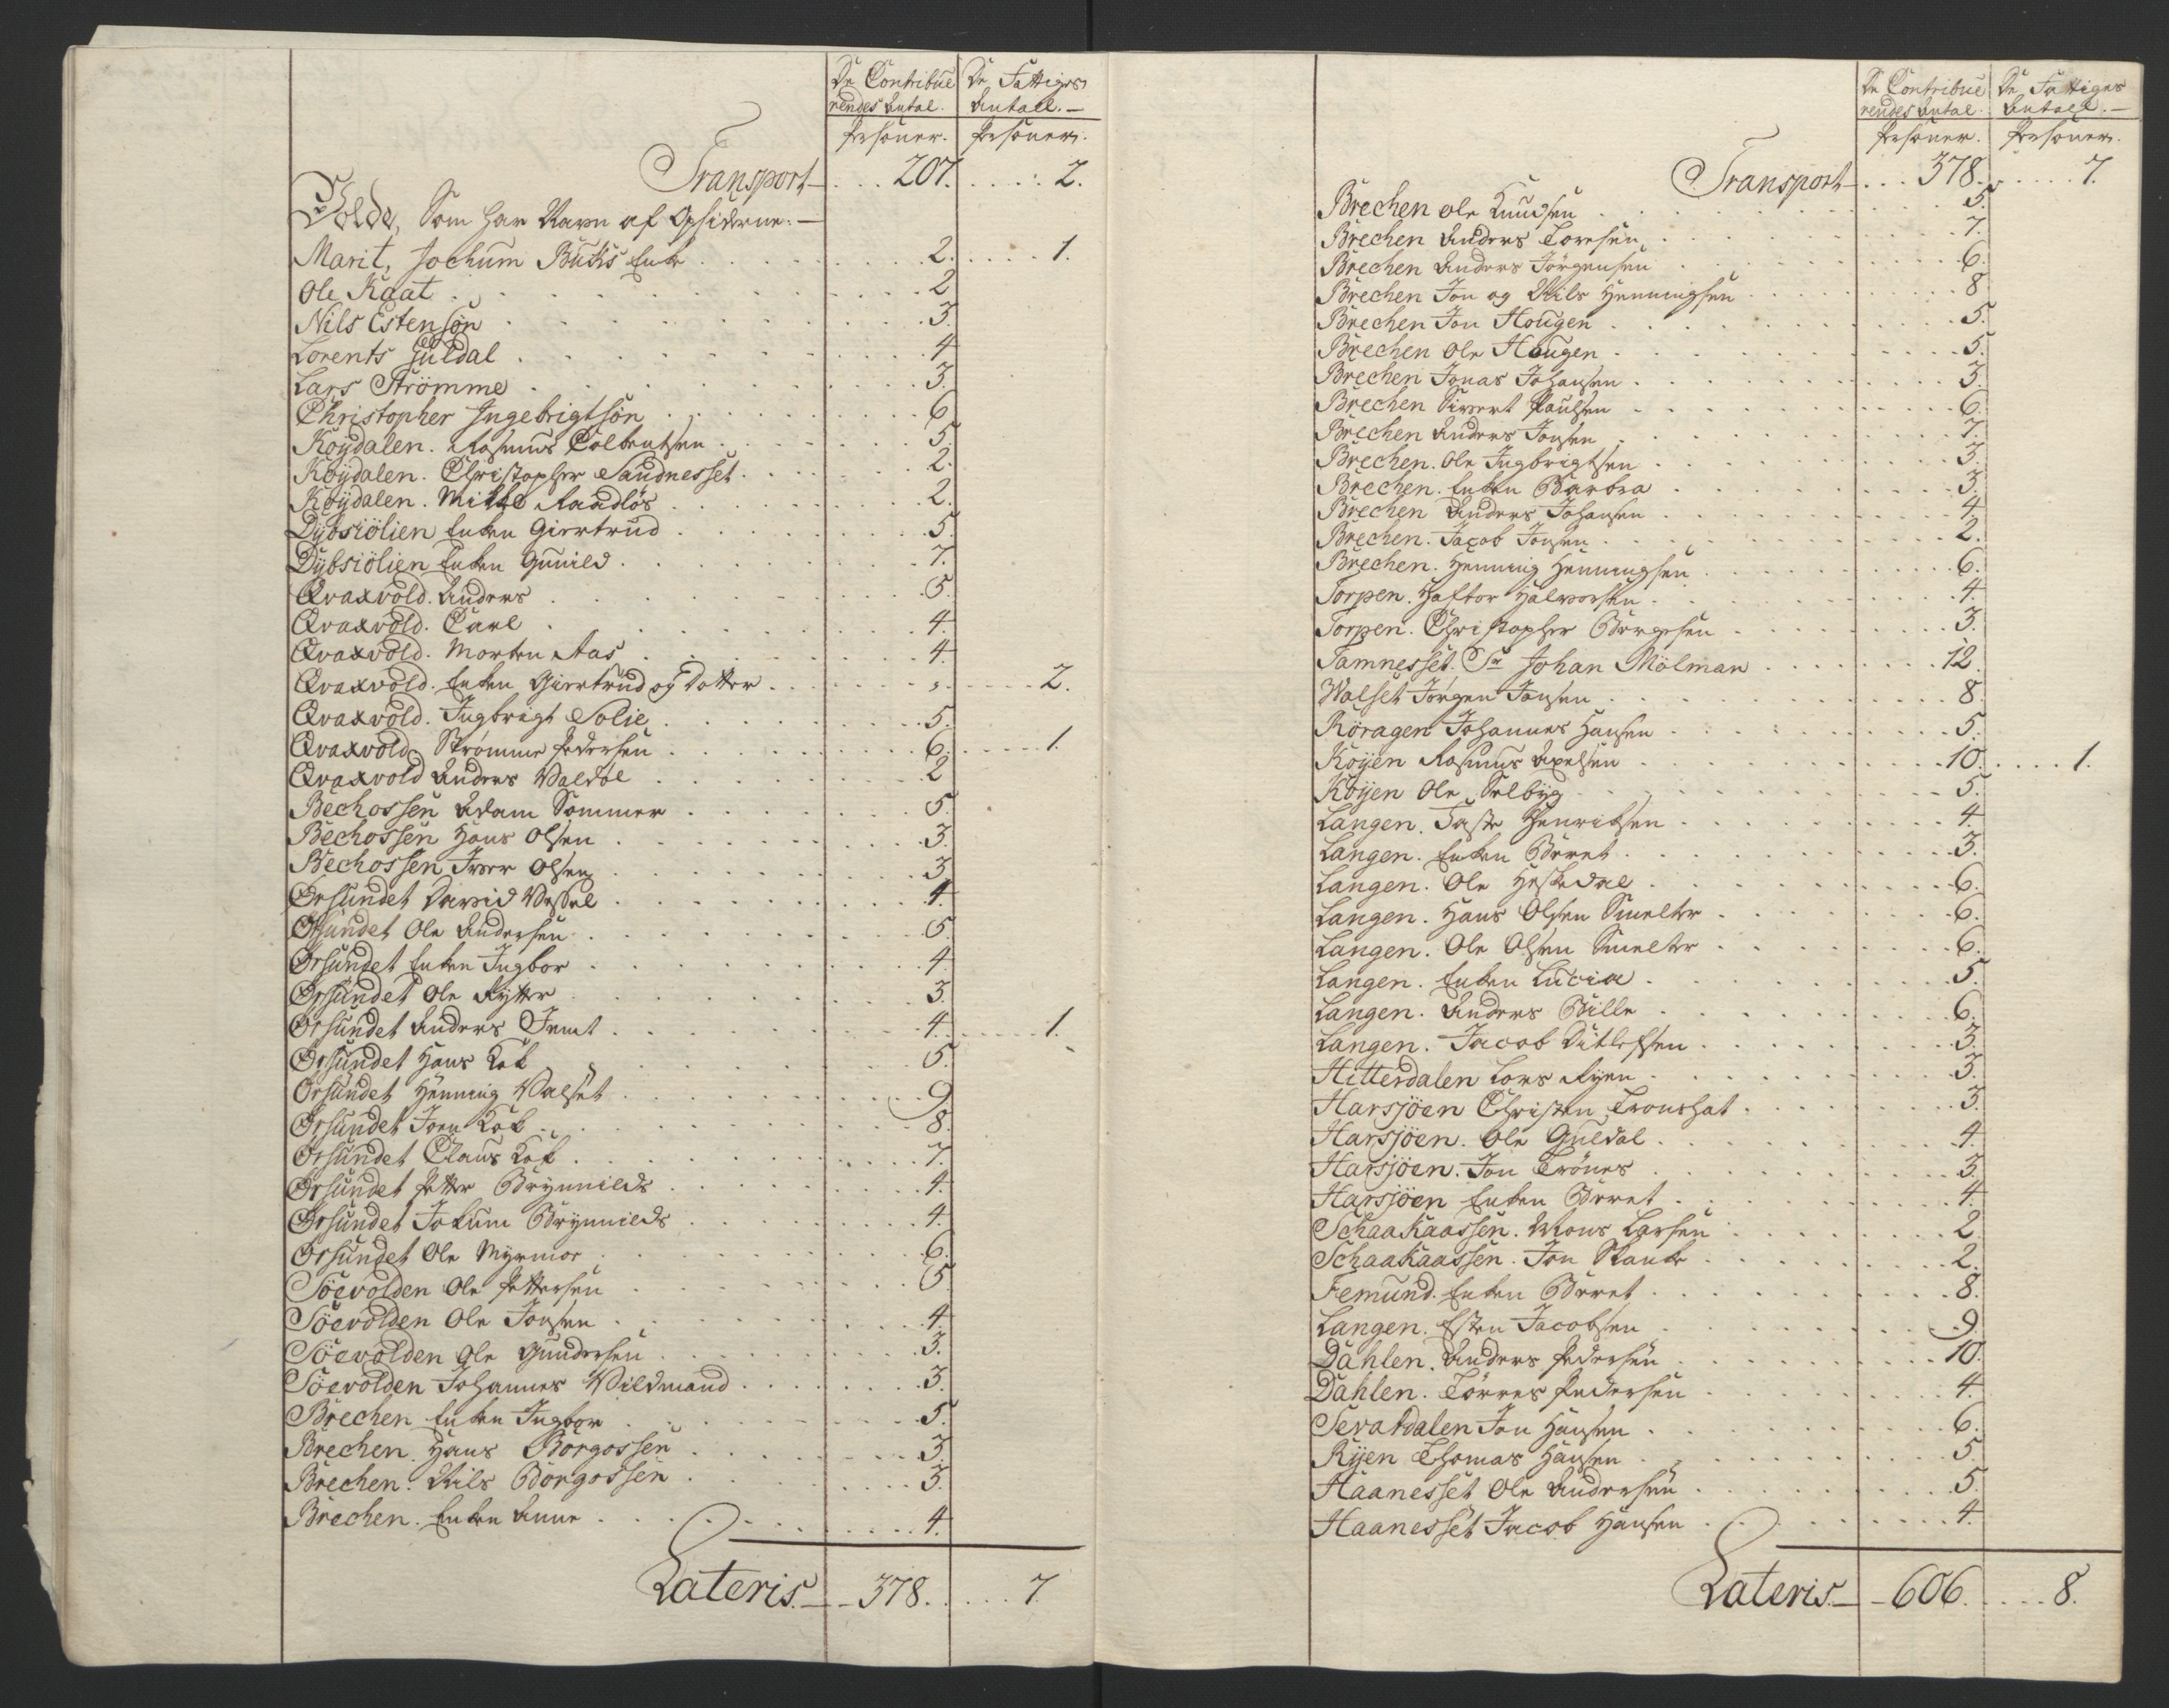 De Contribue De Fattiges
rendes Antal. Antall.—
Persohner. Persohner.
Transport 207. 2.
Volde, Som har Navn af Opsiderne.—
Marit, Jochum Buchs Enke 2. 1.
Ole Kaat 2
Nils Estensön 3.
Lorents Guldal 4
Lars Strömme 3.
Christopher Ingebrigtsön 6
Koÿdalen. Rasmus Colbentsen 5
Koÿdalen. Christopher Sandnesset 2.
Koÿdalen. Mikkel Raadlös 2.
Dÿbsiölien Enken Giertrud 5.
Dÿbsiölien Enken Gunild 7.
Qvaxvold. Anders 5.
Qvaxvold. Carl 4.
Qvaxvold. Morten Aas 4.
Qvaxvold. Enken Giertrud og Datter 2.
Qvaxvold. Ingbrigt Solie 5.
Qvaxvold Strömme Pedersen 6. 1.
Qvaxvold Anders Valdal 2
Bechossen Adam Sommer 5
Bechossen Hans Olsen 3.
Bechossen Iver Olsen 3.
Örsundet David Vessel 4.
Örsundet Ole Andersen 5
Örsundet Enken Ingbor 4
Örsundet Ole Rÿtter 3.
Örsundet Anders Jemt 4. 1.
Örsundet Hans Kok 5.
Örsundet Henning Valset 9.
Örsundet Joen Kok 8.
Örsundet Claus Kok 7.
Örsundet Petter Brÿnnilds 4.
Örsundet Jokum Brÿnnilds 4.
Örsundet Ole Mÿrmor 6.
Söevolden Ole Pettersen 5
Söevolden Ole Jonsen 4.
Söevolden Ole Gundersen 3.
Söevolden Johannes Vildmand 3.
Brechen Enken Ingbor 5.
Brechen. Hans Borgossen 3.
Brechen. Nils Borgossen 3.
Brechen. Enken Anne 4.
Lateris 378. 7
De Contribue De Fattiges
rendes Antal. Antall.—
Persohner. Persohner.
Transport 378. 7.
Brechen Ole Knudsen 5.
Brechen Anders Toresen 7.
Brechen Anders Jörgensen 6.
Brechen Jon og Nils Henningsen 8
Brechen Jon Hougen 5.
Brechen Ole Hougen 5.
Brechen Jonas Johansen 3.
Brechen Sivert Paulsen 6.
Brechen Anders Jonsen 7.
Brechen. Ole Ingbrigtsen 3.
Brechen. Enken Barbra 3.
Brechen Anders Johansen 4.
Brechen. Jacob Jonsen 2.
Brechen. Henning Henningsen 6.
Torpen. Haftor Halvorsen 4.
Torpen. Christopher Börgesen 3.
Tamnesset. Sr Johan Mölman 12.
Walset Jörgen Jonsen 8.
Röragen Johannes Hansen 5.
Koÿen Rasmus Axelsen 10. 1.
Koÿen Ole Selbÿg 5.
Langen. Taste Henriksen 4.
Langen. Enken Beret 3.
Langen. Ole Heskedal 6.
Langen. Hans Olsen Smelter 6.
Langen. Ole Olsen Smelter 6.
Langen. Enken Lucia 5.
Langen. Anders Bille 6.
Langen. Jacob Ditlefsen 3.
Hitterdalen Lars Rÿen 3.
Harsjöen Christen Tronshat 3.
Harsjöen. Ole Guldal 4.
Harsjöen. Jon Trönes 3.
Harsjöen Enken Beret 4.
Schaakaassen. Mons Larsen 2.
Schaakaassen. Jon Skanke 2.
Femund. Enken Beret 8.
Langen. Esten Jacobsen 9.
Dahlen. Anders Pedersen 10.
Dahlen. Törres Pedersen 4.
Sevatdalen Jon Hansen 6.
Rÿen Thomas Hansen 5.
Haanesset Ole Andersen 5.
Haanesset Jacob Hansen 4.
Lateris 606. 8.